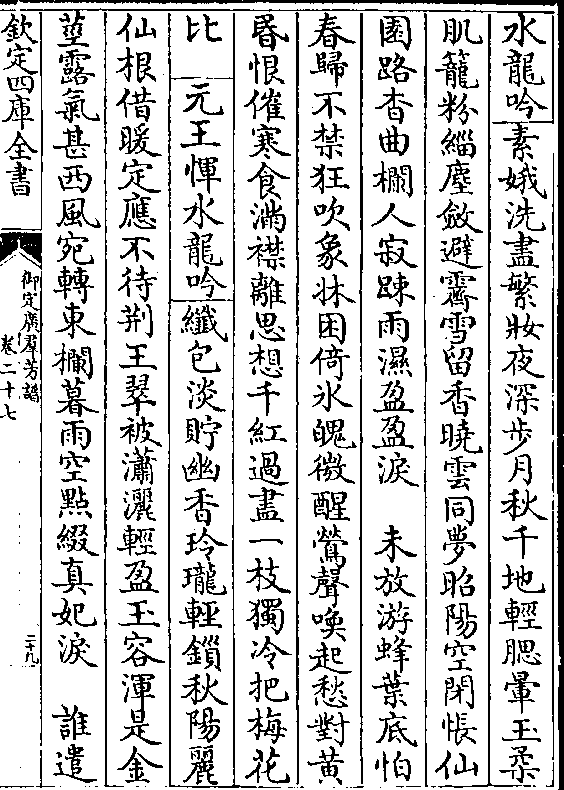 水龍吟素娥洗盡繁妝夜深步月秋千地輕腮暈玉柔
肌籠粉緇塵斂避霽雪留香曉雲同夢昭陽空閉悵仙
園路杳曲欄人寂踈雨濕盈盈淚　未放游蜂葉底怕
春歸不禁狂吹象牀困倚冰魄微醒鶯聲喚起愁對黄
昏恨催寒食滿襟離思想千紅過盡一枝獨冷把梅花
比　元王惲水龍吟纖包淡貯幽香玲瓏輕鎖秋陽麗
仙根借暖定應不待荆王翠被瀟灑輕盈玉容渾是金
莖露氣甚西風宛轉東欄暮雨空點綴真妃淚　誰遣
欽定四庫全書
御定廣羣芳譜
卷二十七
二十九